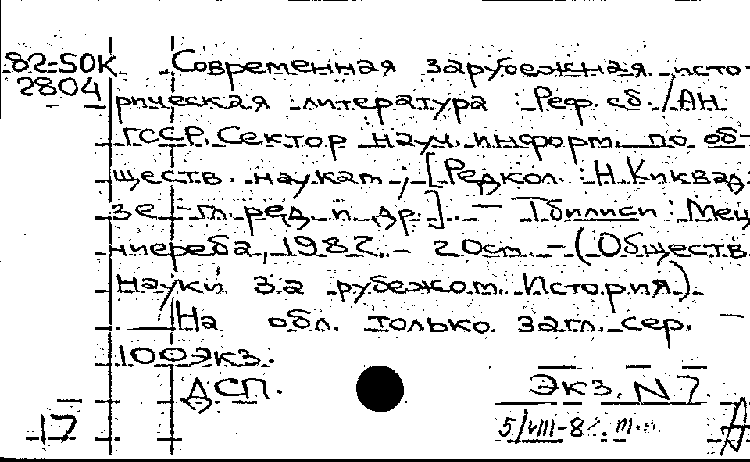 82-SOK Современная зарубежная исто-
2804 рическая литература : Реф. сб. / АН
ГССР. Сектор науч. информ. по об-
ществ. наукам ; [Редкол. : Н. Киквад-
зе - гл. ред. и др.]. - Тбилиси : Мец-
ниереба, 1982. - 20см. - (Обществ.
науки за рубежом. История).
На обл. только загл. сер. -
100экз.
ДСП. Экз. N 7
17 5/VIII-82.